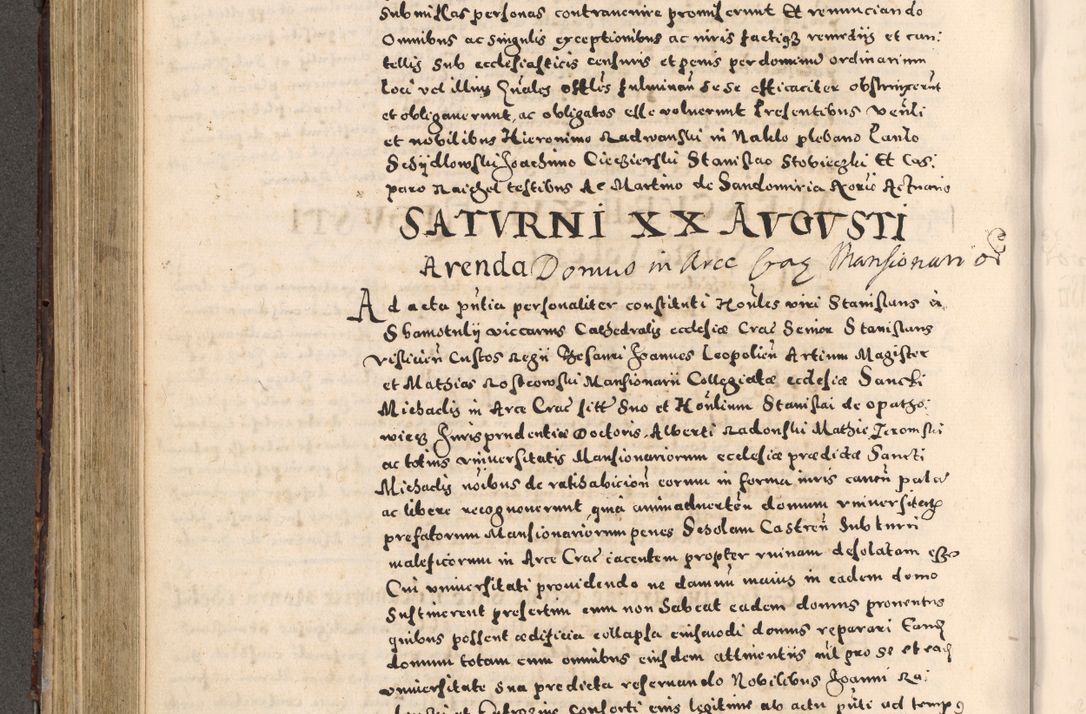 submissas personas contravenire promiserunt Et renunciando
Omnibus ac singulis exceptionibus ac iuris factiq3 remedijs et cau:
tellis sub ecclesiasticis censuris et penis per dominum ordinarium
loci vel illius fulminan sese efficaciter obstrinxerut
et obligauerunt, ac obligatos esse voluerunt Presentibus
et nobilibus Hieronimo Radwanski in Naklo plebano Paulo
Schydlowski Joachimo Cieczierski Stanislao Et Cas:
paro testibus Ac Martino de Sandomiria Actuario
SATVRNI XX AVGVSTI
Arenda Domus in Arce Crac Mansionarior
Ad acta putia personaliter constituti Honles viri Stanislaus à
Sbamotulij viccarius Cathedralis ecclesiæ Crac Senior Stanislaus
Vislicien Custos Regij Thesauri Joannes Leopolien Artium Magister
et Mathias Rostkowski Mansionarii Collegiatæ ecclesiæ Sancti
Michaelis in Arce Crac sitt Suo et Honlium Stanislai de opatho:
wiecz Jurisprudentiæ Doctoris Alberti Radonski Mathie Jeromski
ac totius vniuersitatis Mansionariorum ecclesiæ prædictæ Sancti
Michaelis noibus de ratihabicion eorum in forma iuris
ac libere recognouerunt, quia animaduerten domum vniuersitatis
prefatorum Mansionariorum penes Scholam Castren Sub turri
maleficorum in Arce Crac iacentem propter ruinam desolatam esse
Cui vniuersitati prouidendo ne damnu maius in eadem domo
Sustinerent presertim cum non habeat eadem domus prouentus
quibus possent ædificia collapsa eiusmodi domus reparari Eand
domum totam cum omnibus eiusdem attinentiis nil pro se et ead
vniuersitate sua predicta reseruando Nobilibus Joanni Ra:
conforti eius legitime ab actu puti ad tempus